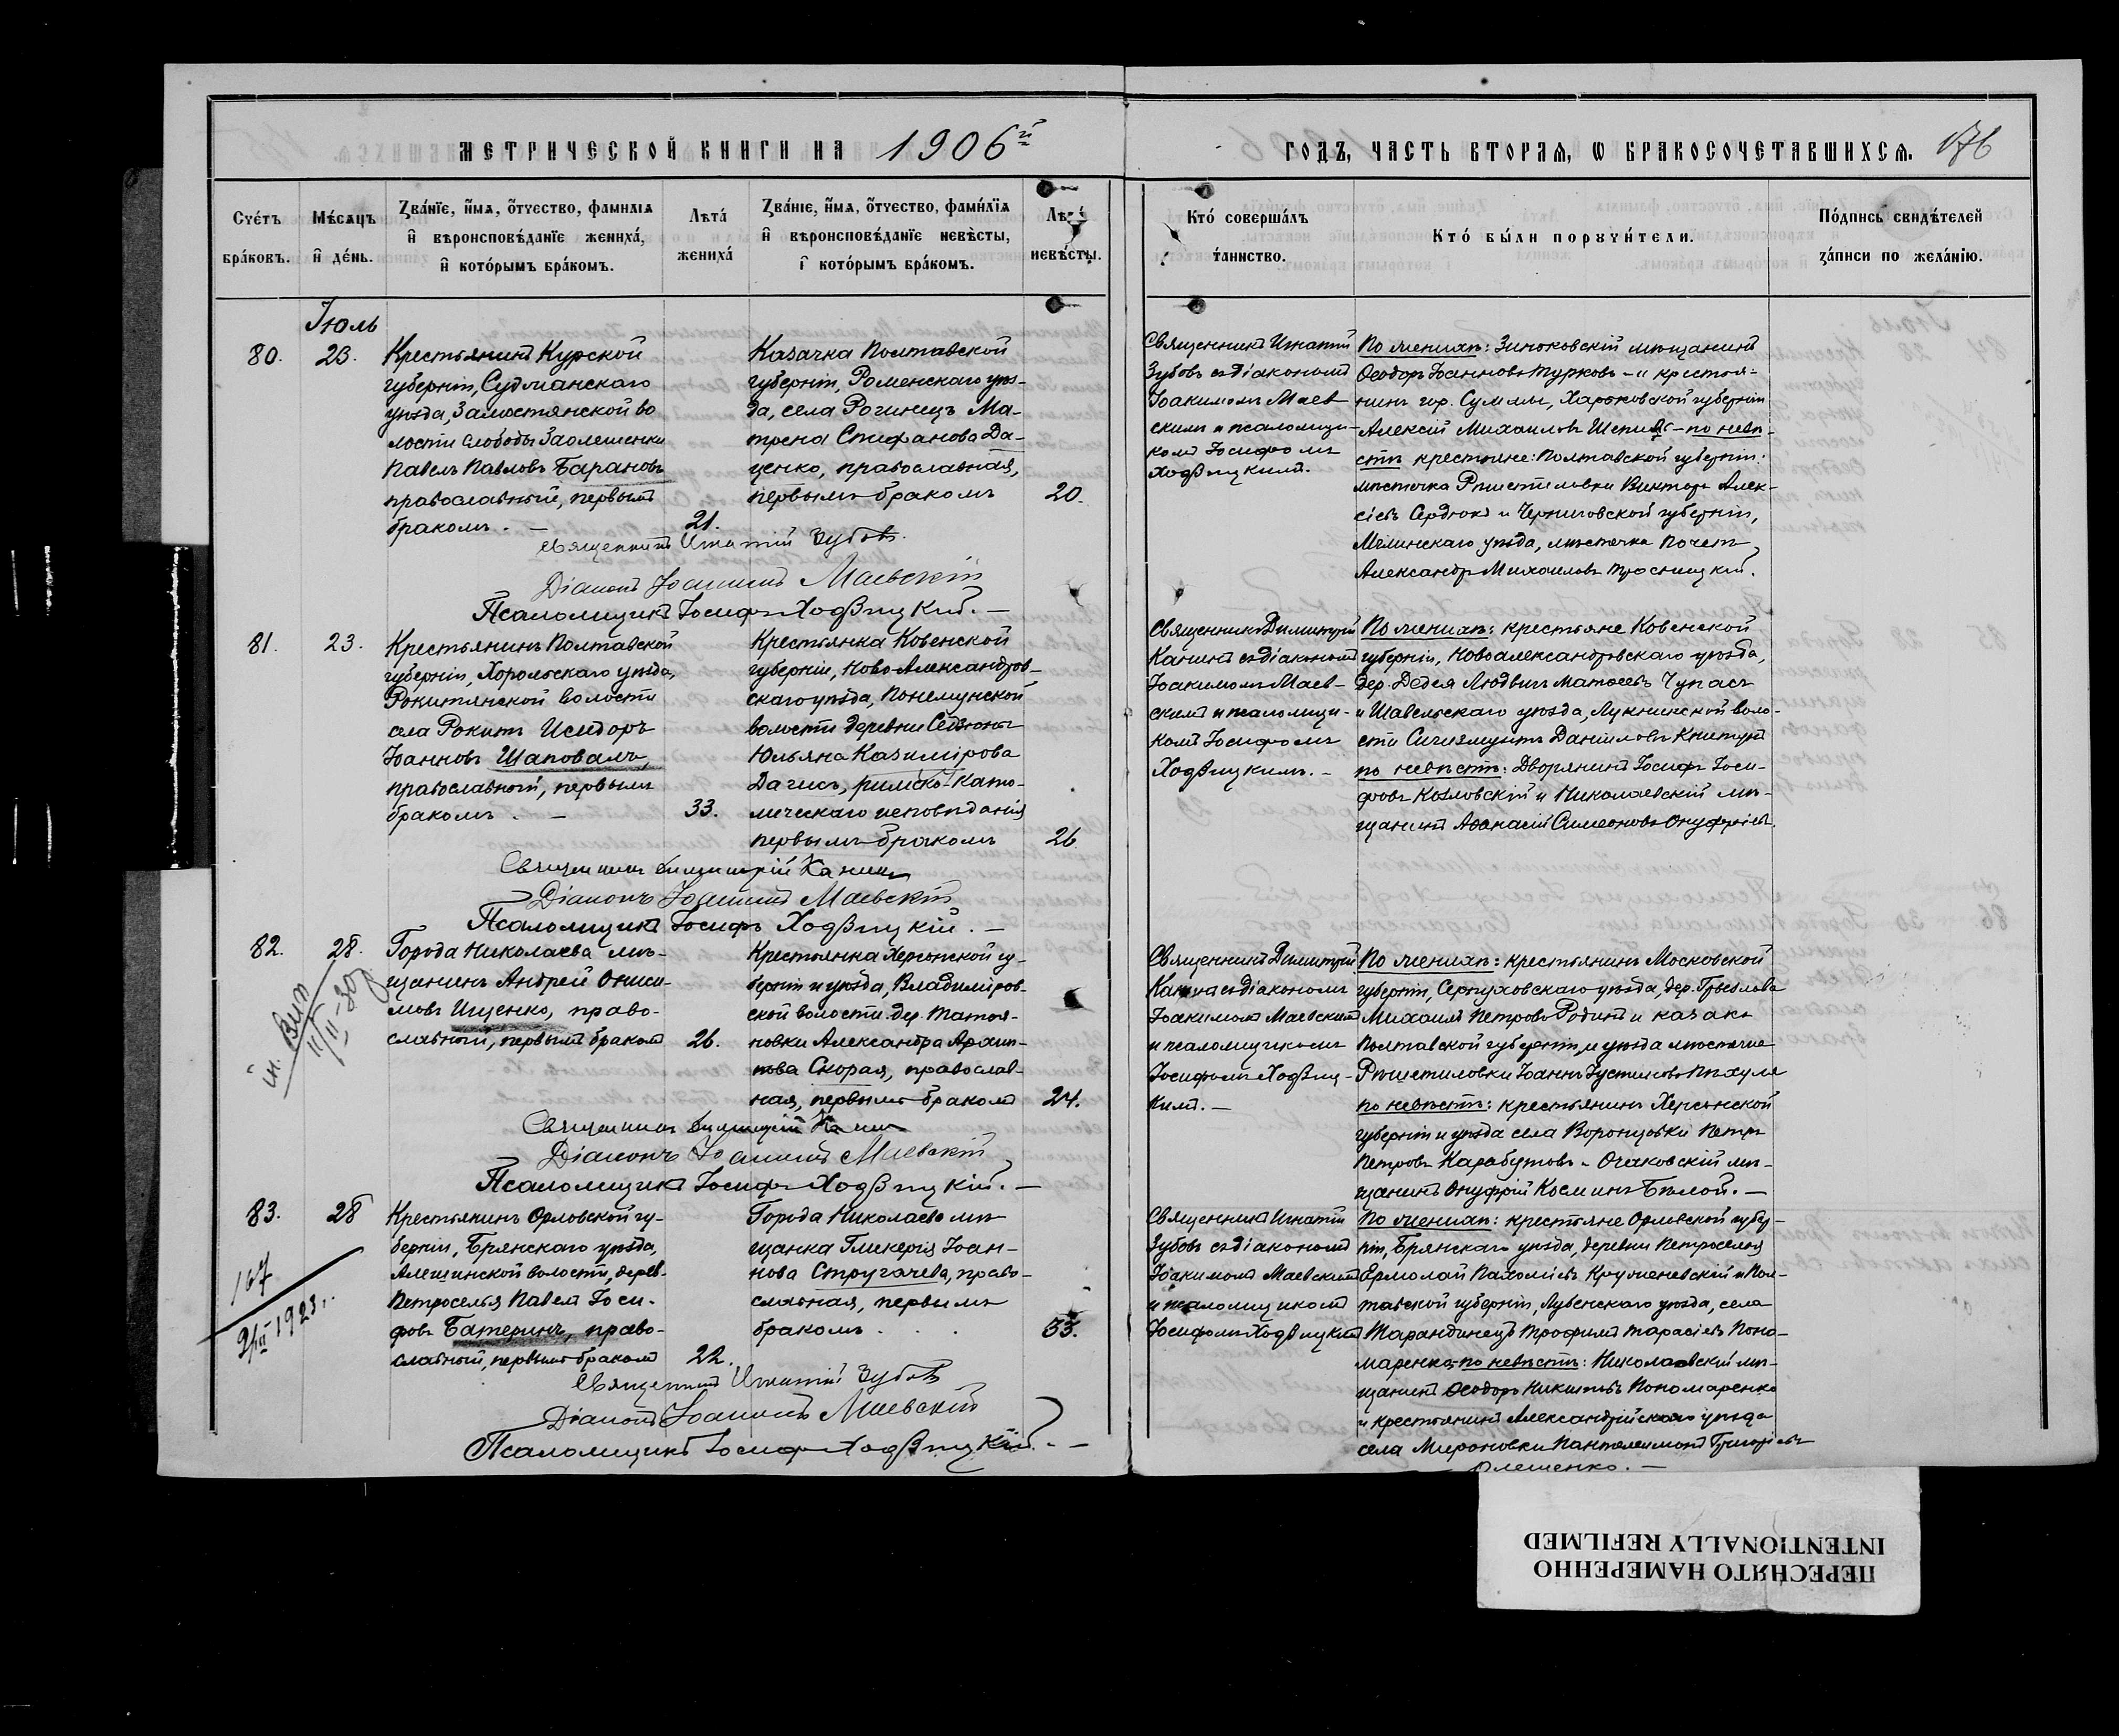 МЕТРИЧЕСКОЙ КНИГИ НА 1906й
ГОДЪ, ЧАСТЬ ВТОРАЯ, Ѡ БРАКОСОЧЕТАВШИХСЯ. 176
Счетъ браковъ.
Мѣсяцъ и день.
Званіе, имя, отчество, фамилія
и вѣроисповѣданіе жениха,
и которымъ бракомъ.
Лѣта
жениха
Званіе, имя, отчество, фамилія
и вѣроисповѣданіе невѣсты,
и которымъ бракомъ.
Лѣта
невѣсты.
Кто совершалъ
таинство.
Кто были поручители.
Подпись свидѣтелей
записи по желанію.
Іюль
80. 23.
Крестьянинъ Курской
губерніи, Суджанскаго
уѣзда, Замостянской во
лости слободы Заолешенки
Павелъ Павловъ Барановъ
православный, первымъ
бракомъ. — 21.
Казачка Полтавской
губерніи, Роменскаго уѣз-
да, села Рогинецъ Ма-
трена Стефанова Да-
ценко, православная,
первымъ бракомъ 20.
Священникъ Игнатій
Зубовъ съ діакономъ
Іоакимомъ Маев-
скимъ и псаломщи-
комъ Іосифомъ
Ходвицкимъ.
По женихѣ: Зиньковскій мѣщанинъ
Ѳеодоръ Іоанновъ Турковъ — и крестья-
нинъ гор. Сумъ, Харьковской губерніи
Алексій Михаиловъ — по невѣ-
стѣ крестьяне: Полтавской губерніи:
мѣстечка Рѣшетиловки Викторъ Алек-
сіевъ Сердюкъ и Черниговской губерніи,
Мглинскаго уѣзда, мѣстечка Почепъ
Александръ Михаиловъ
Священникъ Игнатій Зубовъ.
Діаконъ Іоакимъ Маевскій
Псаломщикъ Іосифъ Ходвицкій. —
81. 23.
Крестьянинъ Полтавской
губерніи, Хорольскаго уѣзда,
Рокитянской волости
села Рокитъ Исидоръ
Іоанновъ Шаповалъ,
православный, первымъ
бракомъ. — 33.
Крестьянка Ковенской
губерніи, Ново-Александров-
скаго уѣзда, Понемунской
волости деревни
Юльяна Казимірова
Дагись, римско-като-
лическаго исповѣданія
первымъ бракомъ 26
Священникъ Димитрій
Канинъ съ діакономъ
Іоакимомъ Маев-
скимъ и псаломщи-
комъ Іосифомъ
Ходвицкимъ. —
По женихѣ: крестьяне Ковенской
губерніи, Новоалександровскаго уѣзда,
дер. Людвигъ Матѳеевъ Чупасъ
и Шавельскаго уѣзда, Лукницкой воло-
сти Сигизмунтъ Даніиловъ
по невѣстѣ: Дворянинъ Іосифъ Іоси-
фовъ Козловскій и Николаевскій мѣ-
щанинъ Аѳанасій Симеоновъ Онуфріевъ.
Священникъ Димитрій Канинъ
Діаконъ Іоакимъ Маевскій
Псаломщикъ Іосифъ Ходвицкій. —
82. 28.
Города Николаева мѣ-
щанинъ Андрей Ониси-
мовъ Ищенко, право-
славный, первымъ бракомъ 26.
Крестьянка Херсонской гу-
берніи и уѣзда, Владиміров-
ской волости дер. Татья-
новки Александра Архип-
пова Скорая, православ-
ная, первымъ бракомъ 24.
Священникъ Димитрій
Канинъ съ діакономъ
Іоакимомъ Маевскимъ
и псаломщикомъ
Іосифомъ Ходвиц-
кимъ. —
По женихѣ: крестьянинъ Московской
губерніи, Серпуховскаго уѣзда, дер.
Михаилъ Петровъ Родинъ и казакъ
Полтавской губерніи и уѣзда мѣстечка
Рѣшетиловки Іоаннъ Іустиновъ
по невѣстѣ: крестьянинъ Херсонской
губерніи и уѣзда села Воронцовки Петръ
Петровъ Карабутовъ и Очаковскій мѣ-
щанинъ Онуфрій Косминъ Бѣлой. —
Священникъ Димитрій Канинъ
Діаконъ Іоакимъ Маевскій
Псаломщикъ Іосифъ Ходвицкій. —
83. 28
167
9/III 1923 г.
Крестьянинъ Орловской гу-
берніи, Брянскаго уѣзда,
Алешинской волости, дерев.
Петроселья Павелъ Іоси-
фовъ Батеринъ, право-
славный, первымъ бракомъ 22.
Города Николаева мѣ-
щанка Гликерія Іоан-
нова Стругачева, право-
славная, первымъ
бракомъ . . . 33.
Священникъ Игнатій
Зубовъ съ діакономъ
Іоакимомъ Маевскимъ
и псаломщикомъ
Іосифомъ Ходвицкимъ
По женихѣ: крестьяне Орловской губер-
ніи, Брянскаго уѣзда, деревни Петроселья
Ермолай Пахоміевъ и Пол-
тавской губерніи, Лубенскаго уѣзда, села
Тарандинецъ Трофимъ Тарасіевъ Поно-
маренко; по невѣстѣ: Николаевскій мѣ-
щанинъ Ѳеодоръ Никитовъ Пономаренко
и крестьянинъ Александрійскаго уѣзда
села Мироновки Пантелеимонъ Григоріевъ
Олешенко. —
Священникъ Игнатій Зубовъ
Діаконъ Іоакимъ Маевскій
Псаломщикъ Іосифъ Ходвицкій. —
ПЕРЕСНЯТО НАМЕРЕННО
INTENTIONALLY REFILMED